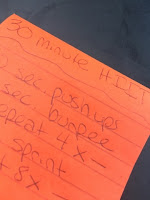 30 minute HIIT
0 sec. pushups
sec. burpee
repeat 4x –
sprint
t 8x –